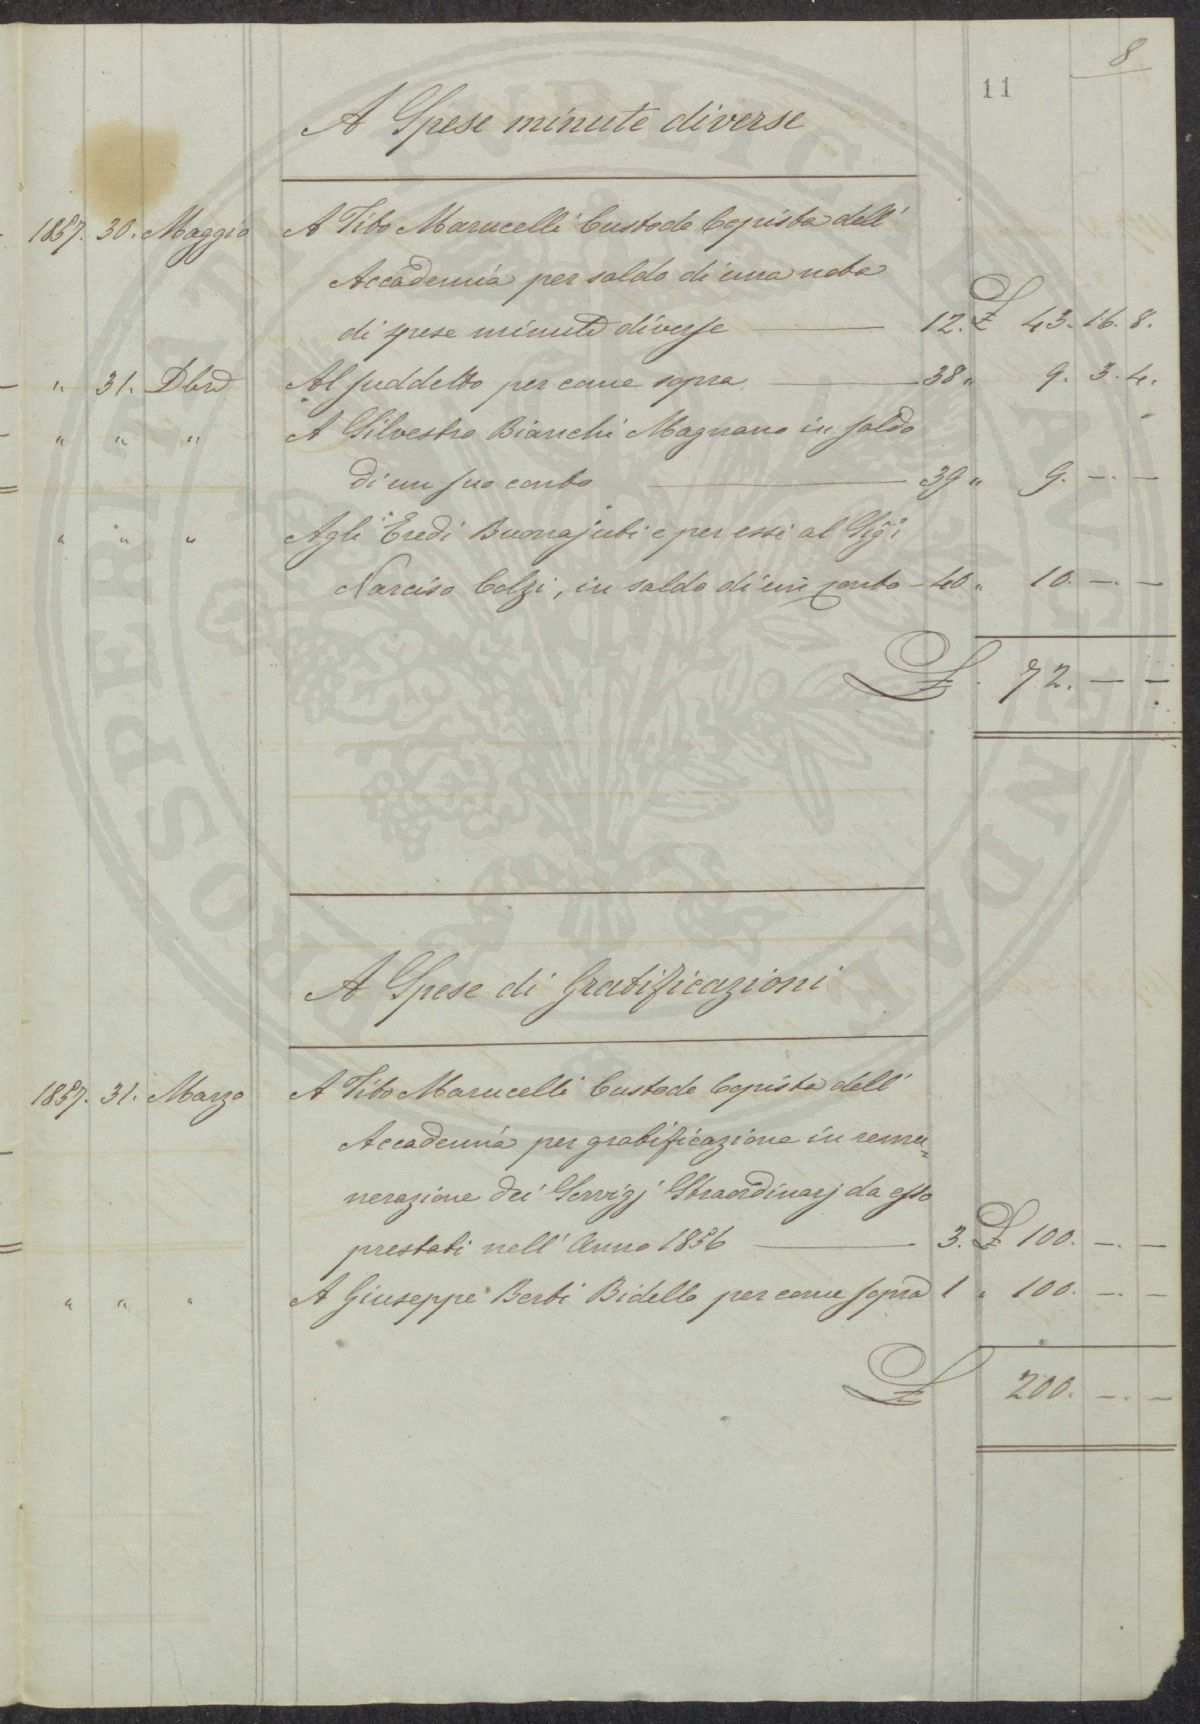 8
11
A Spese minute diverse
1857. 30. Maggio A Tito Marucelli Custode Copista dell'
Accademia per saldo di una nota
di spese minute diverse 12. £ 43. 16. 8.
" 31. Dbre Al suddetto per come sopra 38 " 9. 3. 4.
" " " A Silvestro Bianchi Magnano in saldo
di un suo conto 39 " 9. — —
" " " Agli Eredi Buonajuti e per essi al Sig:
Narciso Colzi, in saldo di un conto - 40 " 10. — —
£. 72. — —
A Spese di Gratificazioni
1857. 31. Marzo A Tito Marucelli Custode Copista dell'
Accademia per gratificazione in remu-
nerazione dei Servigj Straordinarj da esso
prestati nell' Anno 1856 3. £ 100. — —
" " " A Giuseppe Berti Bidello per come sopra 1 " 100. — —
£ 200. — —
PROSPERITATI PUBLICAE AUGENDAE